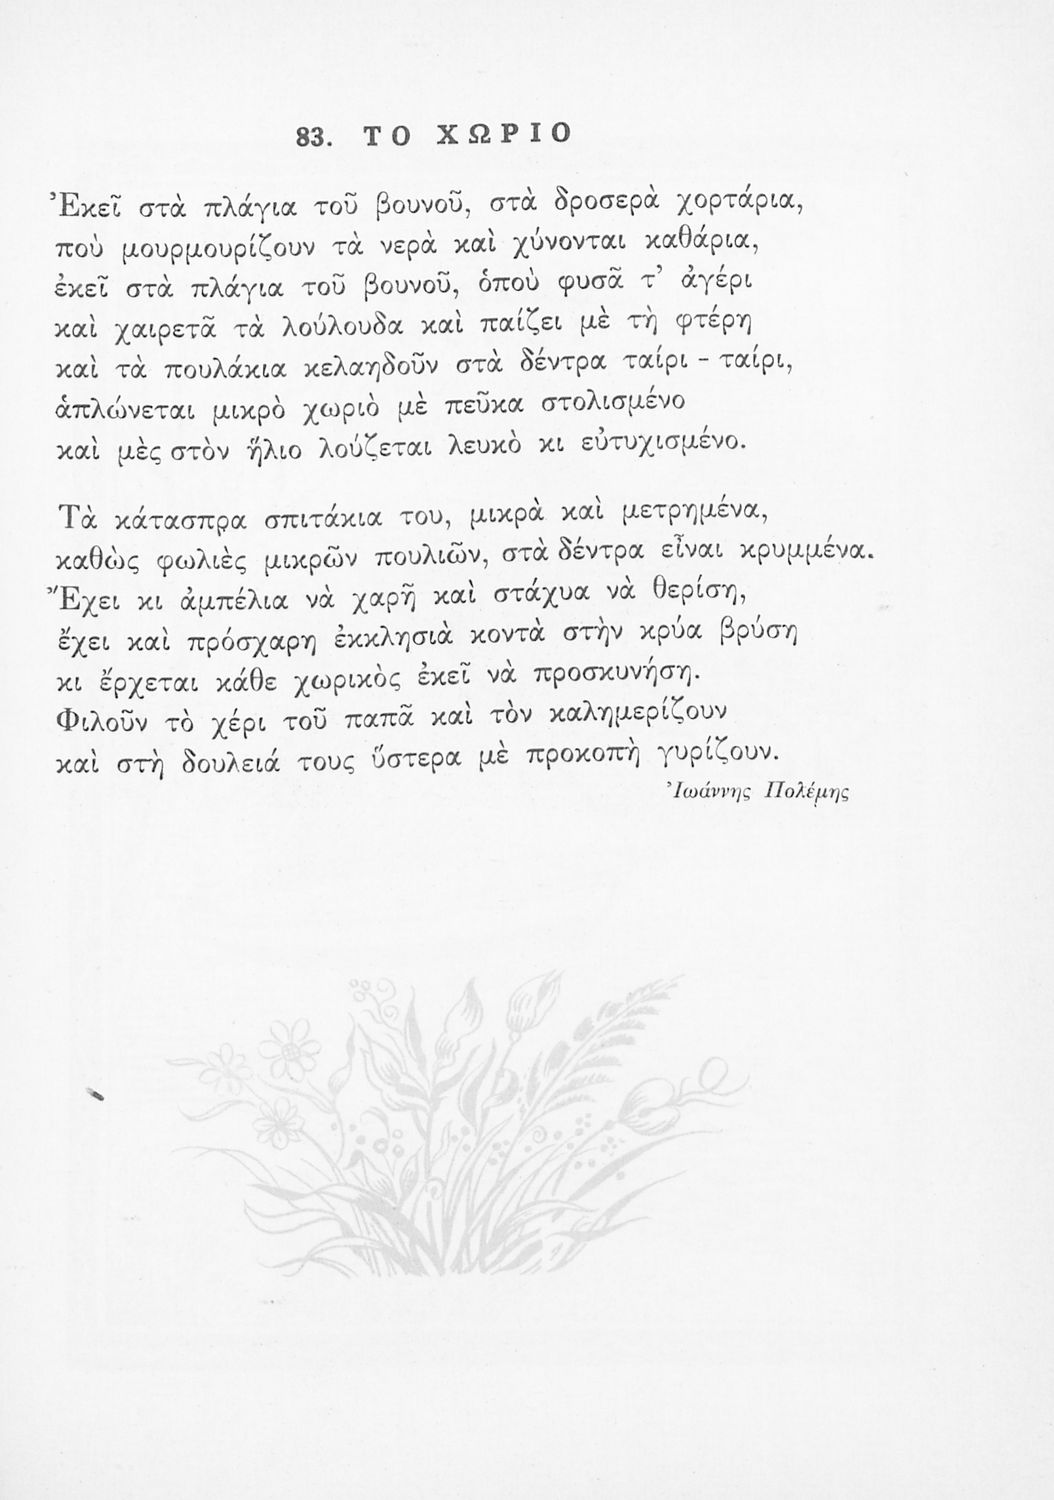 83. ΤΟ ΧΩΡΙΟ
Ἐκεῖ στὰ πλάγια τοῦ βουνοῦ, στὰ δροσερὰ χορτάρια,
ποὺ μουρμουρίζουν τὰ νερὰ καὶ χύνονται καθάρια,
ἐκεῖ στὰ πλάγια τοῦ βουνοῦ, ὁποὺ φυσᾶ τ' ἀγέρι
καὶ χαιρετᾶ τὰ λούλουδα καὶ παίζει μὲ τὴ φτέρη
καὶ τὰ πουλάκια κελαηδοῦν στὰ δέντρα ταίρι - ταίρι,
ἁπλώνεται μικρὸ χωριὸ μὲ πεῦκα στολισμένο
καὶ μὲς στὸν ἥλιο λούζεται λευκὸ κι εὐτυχισμένο.
Τὰ κάτασπρα σπιτάκια του, μικρὰ καὶ μετρημένα,
καθὼς φωλιὲς μικρῶν πουλιῶν, στὰ δέντρα εἶναι κρυμμένα.
Ἔχει κι ἀμπέλια νὰ χαρῆ καὶ στάχυα νὰ θερίση,
ἔχει καὶ πρόσχαρη ἐκκλησιὰ κοντὰ στὴν κρύα βρύση
κι ἔρχεται κάθε χωρικὸς ἐκεῖ νὰ προσκυνήση.
Φιλοῦν τὸ χέρι τοῦ παπᾶ καὶ τὸν καλημερίζουν
καὶ στὴ δουλειά τους ὕστερα μὲ προκοπὴ γυρίζουν.
Ἰωάννης Πολέμης